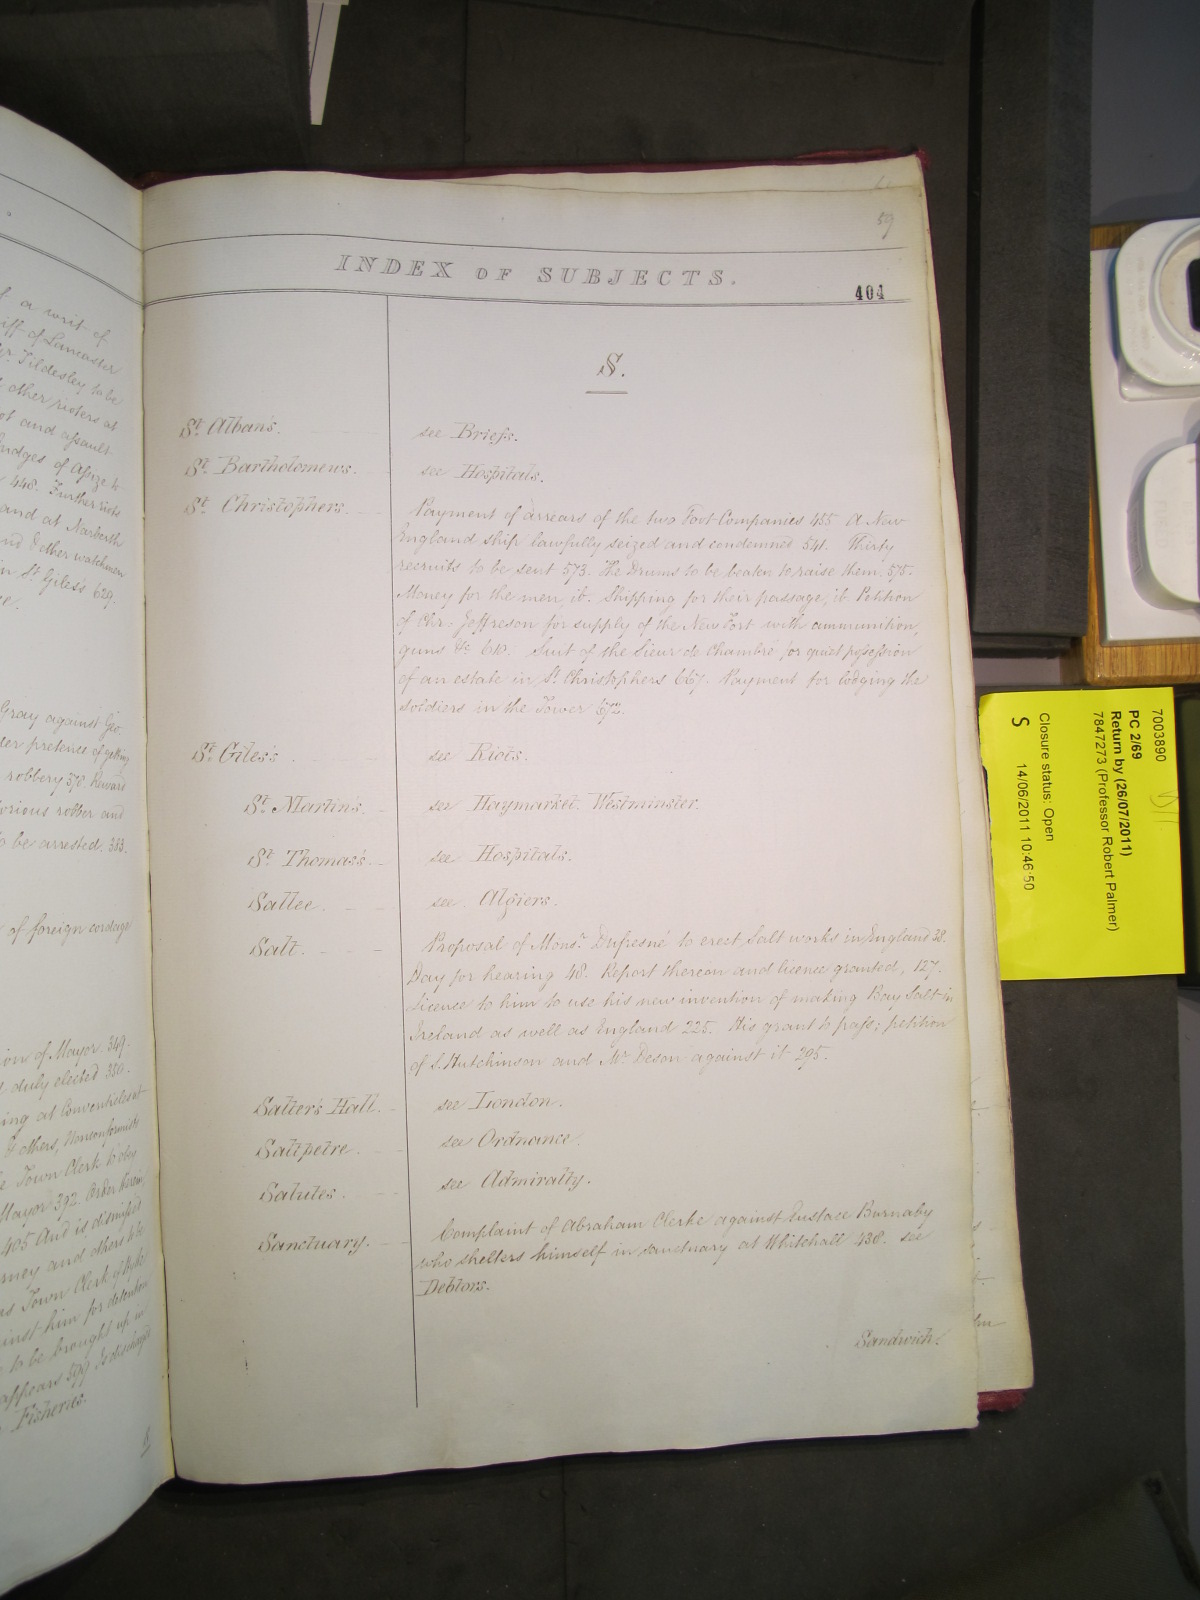 59
INDEX OF SUBJECTS.
404
S.
St. Alban's. see Briefs.
St. Bartholomews. see Hospitals.
St. Christophers. Payment of arrears of the two Foot Companies 455 A New
England ship lawfully seized and condemned 541. Thirty
recruits to be sent 573. The Drums to be beaten to raise them. 575.
Money for the men, ib. Shipping for their passage, ib. Petition
of Chr: Jeffreson for supply of the New Fort with ammunition,
guns &c 610. Suit of the Sieur de Chambré for quiet possession
of an estate in St. Christophers 667. Payment for lodging the
soldiers in the Tower 672.
St. Giles's. see Riots.
St. Martins. see Haymarket. Westminster.
St. Thomas's. see Hospitals.
Sallee. see Algiers.
Salt. Proposal of Monsr. Dufresné to erect Salt works in England 38.
Day for hearing 48. Report thereon and licence granted, 127.
Licence to him to use his new invention of making Bay Salt in
Ireland as well as England 225. His grant to pass; petition
of S. Hutchinson and Mr. Deson against it 295.
Salter's Hall. see London.
Saltpetre. see Ordnance.
Salutes. see Admiralty.
Sanctuary. Complaint of Abraham Clerke against Eustace Burnaby
who shelters himself in sanctuary at Whitehall 438. see
Debtors.
Sandwich.
of a writ of
iff of Lancaster
r. Tildesley to be
other rioters at
ot and assault
Judges of Assize to
448. Further riots
and at Narberth
nd & other watchmen
in St. Giles's 629.
Gray against Geo.
der pretence of getting
robbery 570. Reward
orious robber and
to be arrested. 383.
of foreign cordage
ion of Mayor 349.
duly elected 350.
ing at Conventicles at
& others, Nonconformists
Town Clerk to obey
Mayor 392. Order therein
405 And is dismissed
rney and others to be
as Town Clerk of
inst him for detention
to be brought up in
appears 599 Is discharged
Fisheries.
7003890
PC 2/69
Return by (26/07/2011)
7847273 (Professor Robert Palmer)
Closure status: Open
S 14/06/2011 10:46:50